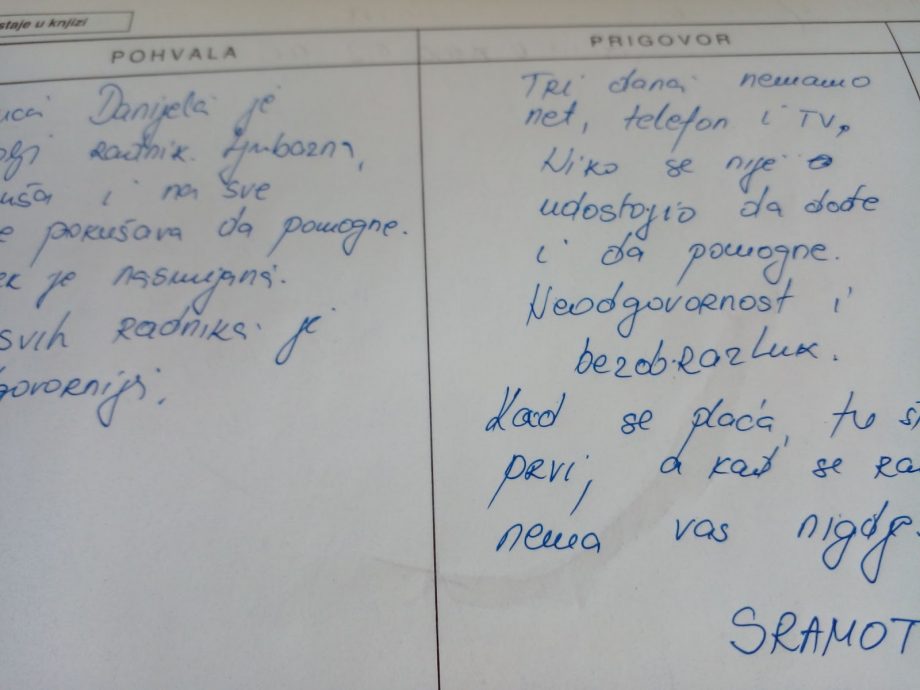 staje u knjizi
POHVALA
Danijela je
radnik. Ljubazna,
i na sve
pokušava da pomogne.
je nasmijana.
svih radnika je
PRIGOVOR
Tri dana nemamo
net, telefon i TV,
Niko se nije
udostojio da dođe
i da pomogne.
Neodgovornost i
bezobrazluk.
Kad se plaća, tu
prvi, a kad se
nema vas nigdje.
SRAMOT